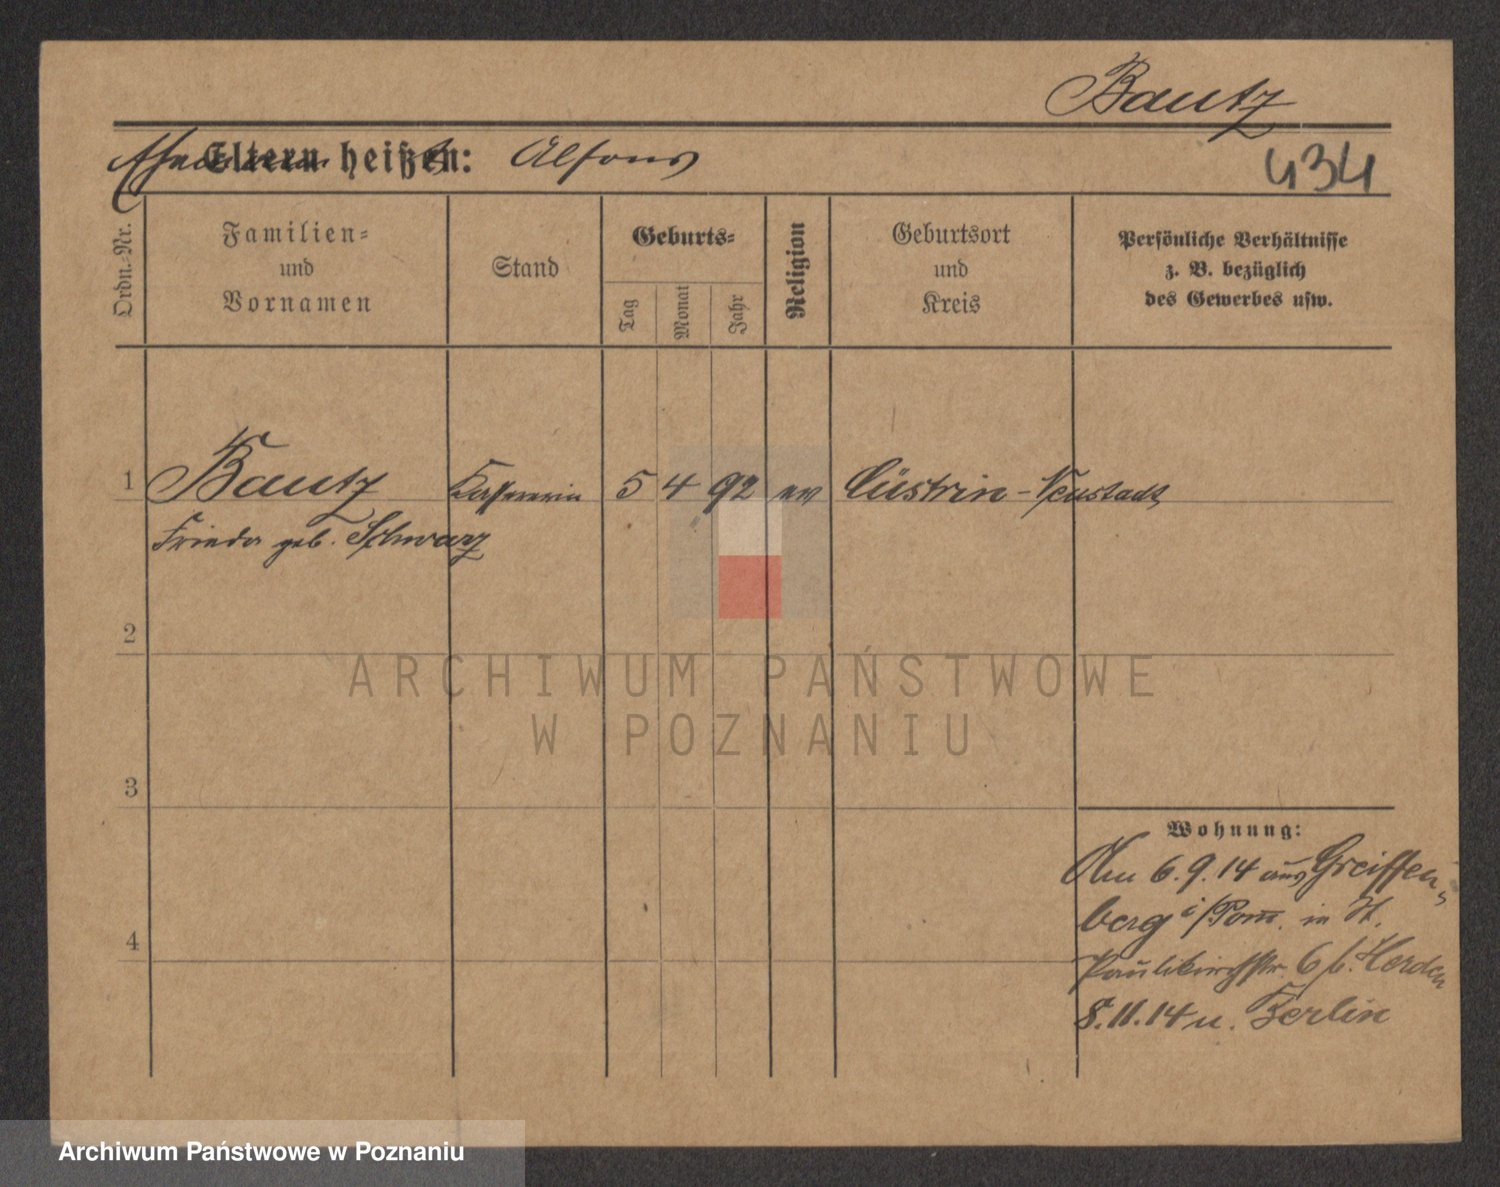 Bautz
Eltern heißen: Alfons
434
Ordn.-Nr.
Familien-
und
Vornamen
Stand
Geburts-
Tag
Monat
Jahr
Religion
Geburtsort
und
Kreis
Persönliche Verhältnisse
z. B. bezüglich
des Gewerbes usw.
1 Bautz 5 4 92 ev Cüstrin-Neustadt
Frieda geb. Schwarz
2
ARCHIWUM PAŃSTWOWE
W POZNANIU
3
Wohnung:
Am 6.9.14 aus Greiffen
berg i/Pom. in H.
4
Paulikirchstr. 6 b. Herden
8.11.14 n. Berlin
Archiwum Państwowe w Poznaniu